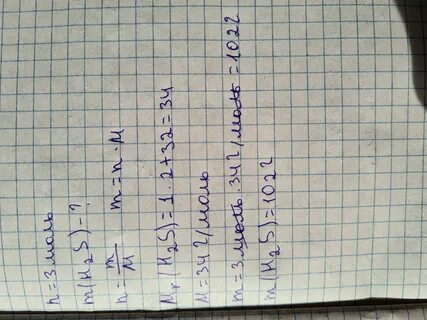 n=3моль
m(H₂S)-?
n=m/M   m=n·M
Mr(H₂S)=1·2+32=34
M=34г/моль
m=3моль·34г/моль=102г
m(H₂S)=102г